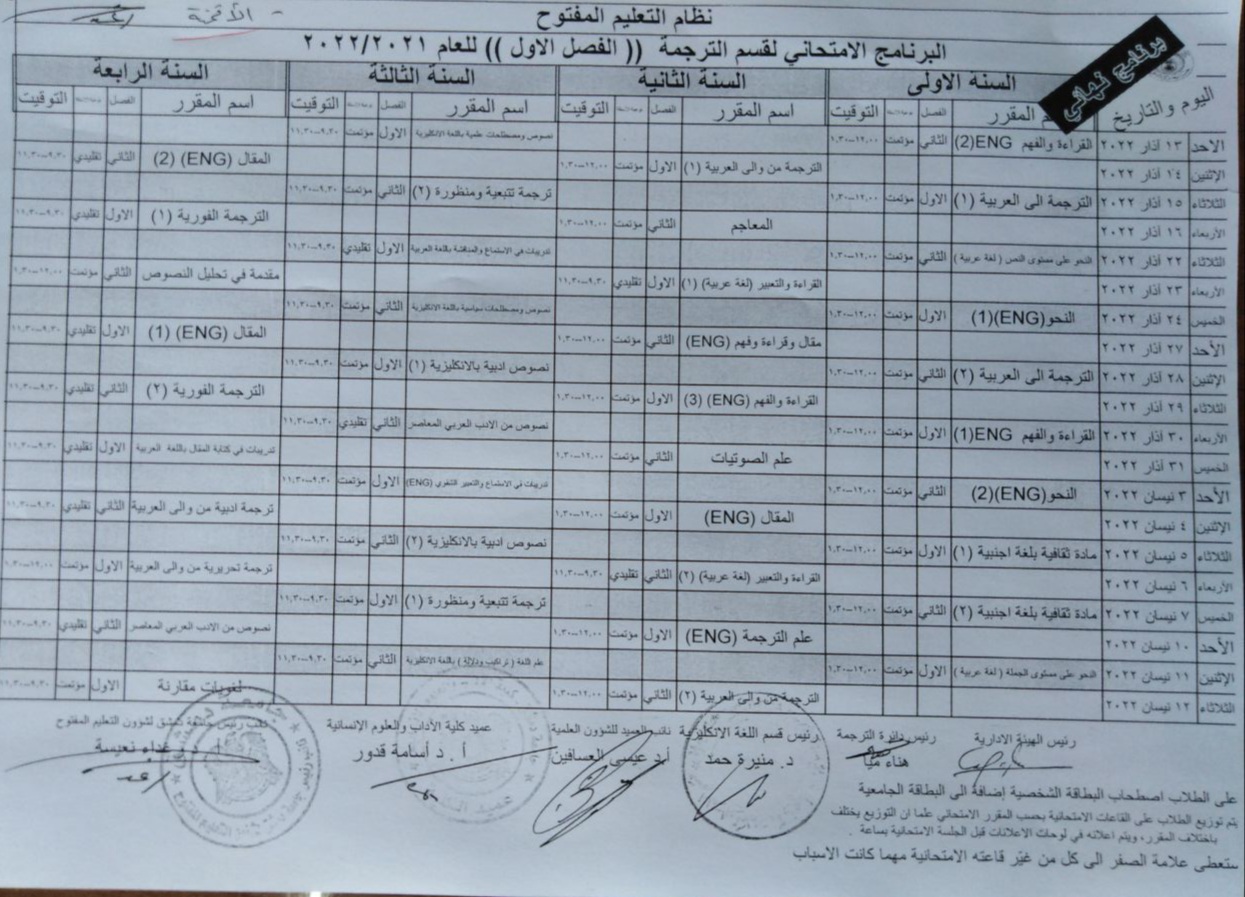 الأقنية -
نظام التعليم المفتوح
البرنامج الامتحاني لقسم الترجمة (( الفصل الاول )) للعام ٢٠٢٢/٢٠٢١
برنامج نهائي
اليوم والتاريخ السنة الاولى السنة الثانية السنة الثالثة السنة الرابعة
اسم المقرر الفصل التوقيت اسم المقرر الفصل التوقيت اسم المقرر الفصل التوقيت اسم المقرر الفصل التوقيت
الاحد ١٣ آذار ٢٠٢٢ القراءة والفهم ENG(2) الثاني مؤتمت ١٢,٠٠-١,٣٠ نصوص ومصطلحات علمية باللغة الانكليزية الاول مؤتمت ٩,٣٠-١١,٣٠
الإثنين ١٤ آذار ٢٠٢٢ الترجمة من والى العربية (١) الاول مؤتمت ١٢,٠٠-١,٣٠ المقال (ENG) (2) الثاني تقليدي ٩,٣٠-١١,٣٠
الثلاثاء ١٥ آذار ٢٠٢٢ الترجمة الى العربية (١) الاول مؤتمت ١٢,٠٠-١,٣٠ ترجمة تتبعية ومنظورة (٢) الثاني مؤتمت ٩,٣٠-١١,٣٠
الأربعاء ١٦ آذار ٢٠٢٢ المعاجم الثاني مؤتمت ١٢,٠٠-١,٣٠ الترجمة الفورية (١) الاول تقليدي ٩,٣٠-١١,٣٠
الثلاثاء ٢٢ آذار ٢٠٢٢ النحو على مستوى النص ( لغة عربية ) الثاني مؤتمت ١٢,٠٠-١,٣٠ تدريبات في الاستماع والمناقشة باللغة العربية الاول تقليدي ٩,٣٠-١١,٣٠
الأربعاء ٢٣ آذار ٢٠٢٢ القراءة والتعبير (لغة عربية) (١) الاول تقليدي ٩,٣٠-١١,٣٠ مقدمة في تحليل النصوص الثاني مؤتمت ١٢,٠٠-١١,٣٠
الخميس ٢٤ آذار ٢٠٢٢ النحو(ENG)(1) الاول مؤتمت ١٢,٠٠-١,٣٠ نصوص ومصطلحات سياسية باللغة الانكليزية الثاني مؤتمت ٩,٣٠-١١,٣٠
الأحد ٢٧ آذار ٢٠٢٢ مقال وقراءة وفهم (ENG) الثاني مؤتمت ١٢,٠٠-١,٣٠ المقال (ENG) (1) الاول تقليدي ٩,٣٠-١١,٣٠
الإثنين ٢٨ آذار ٢٠٢٢ الترجمة الى العربية (٢) الثاني مؤتمت ١٢,٠٠-١,٣٠ نصوص ادبية بالانكليزية (١) الاول مؤتمت ٩,٣٠-١١,٣٠
الثلاثاء ٢٩ آذار ٢٠٢٢ القراءة والفهم (ENG) (3) الاول مؤتمت ١٢,٠٠-١,٣٠ الترجمة الفورية (٢) الثاني تقليدي ٩,٣٠-١١,٣٠
الأربعاء ٣٠ آذار ٢٠٢٢ القراءة والفهم ENG(1) الاول مؤتمت ١٢,٠٠-١,٣٠ نصوص من الادب العربي المعاصر الثاني تقليدي ٩,٣٠-١١,٣٠
الخميس ٣١ آذار ٢٠٢٢ علم الصوتيات الثاني مؤتمت ١٢,٠٠-١,٣٠ تدريبات في كتابة المقال باللغة العربية الاول تقليدي ٩,٣٠-١١,٣٠
الأحد ٣ نيسان ٢٠٢٢ النحو(ENG)(2) الثاني مؤتمت ١٢,٠٠-١,٣٠ تدريبات في الاستماع والتعبير الشفوي (ENG) الاول مؤتمت ٩,٣٠-١١,٣٠
الإثنين ٤ نيسان ٢٠٢٢ المقال (ENG) الاول مؤتمت ١٢,٠٠-١,٣٠ ترجمة ادبية من والى العربية الثاني تقليدي ٩,٣٠-١١,٣٠
الثلاثاء ٥ نيسان ٢٠٢٢ مادة ثقافية بلغة اجنبية (١) الاول مؤتمت ١٢,٠٠-١,٣٠ نصوص ادبية بالانكليزية (٢) الثاني مؤتمت ٩,٣٠-١١,٣٠
الأربعاء ٦ نيسان ٢٠٢٢ القراءة والتعبير (لغة عربية) (٢) الثاني تقليدي ٩,٣٠-١١,٣٠ ترجمة تحريرية من والى العربية الاول مؤتمت ١٢,٠٠-١١,٣٠
الخميس ٧ نيسان ٢٠٢٢ مادة ثقافية بلغة اجنبية (٢) الثاني مؤتمت ١٢,٠٠-١,٣٠ ترجمة تتبعية ومنظورة (١) الاول مؤتمت ٩,٣٠-١١,٣٠
الأحد ١٠ نيسان ٢٠٢٢ علم الترجمة (ENG) الاول مؤتمت ١٢,٠٠-١,٣٠ نصوص من الادب العربي المعاصر الثاني تقليدي ٩,٣٠-١١,٣٠
الإثنين ١١ نيسان ٢٠٢٢ النحو على مستوى الجملة ( لغة عربية ) الاول مؤتمت ١٢,٠٠-١,٣٠ علم اللغة ( تراكيب ودلالة ) باللغة الانكليزية الثاني مؤتمت ٩,٣٠-١١,٣٠
الثلاثاء ١٢ نيسان ٢٠٢٢ الترجمة من والى العربية (٢) الثاني مؤتمت ١٢,٠٠-١,٣٠ لغويات مقارنة الاول مؤتمت ٩,٣٠-١١,٣٠
رئيس الهيئة الادارية رئيس دائرة الترجمة رئيس قسم اللغة الانكليزية نائب العميد للشؤون العلمية عميد كلية الآداب والعلوم الإنسانية نائب رئيس جامعة دمشق لشؤون التعليم المفتوح
هناء ميا د. منيرة حمد أ.د عيسى العسافين أ. د أسامة قدور أ. د رغداء نعيسة
على الطلاب اصطحاب البطاقة الشخصية إضافة الى البطاقة الجامعية
يتم توزيع الطلاب على القاعات الامتحانية بحسب المقرر الامتحاني علما ان التوزيع يختلف
باختلاف المقرر، ويتم اعلانه في لوحات الاعلانات قبل الجلسة الامتحانية بساعة .
ستعطى علامة الصفر الى كل من غيّر قاعته الامتحانية مهما كانت الاسباب